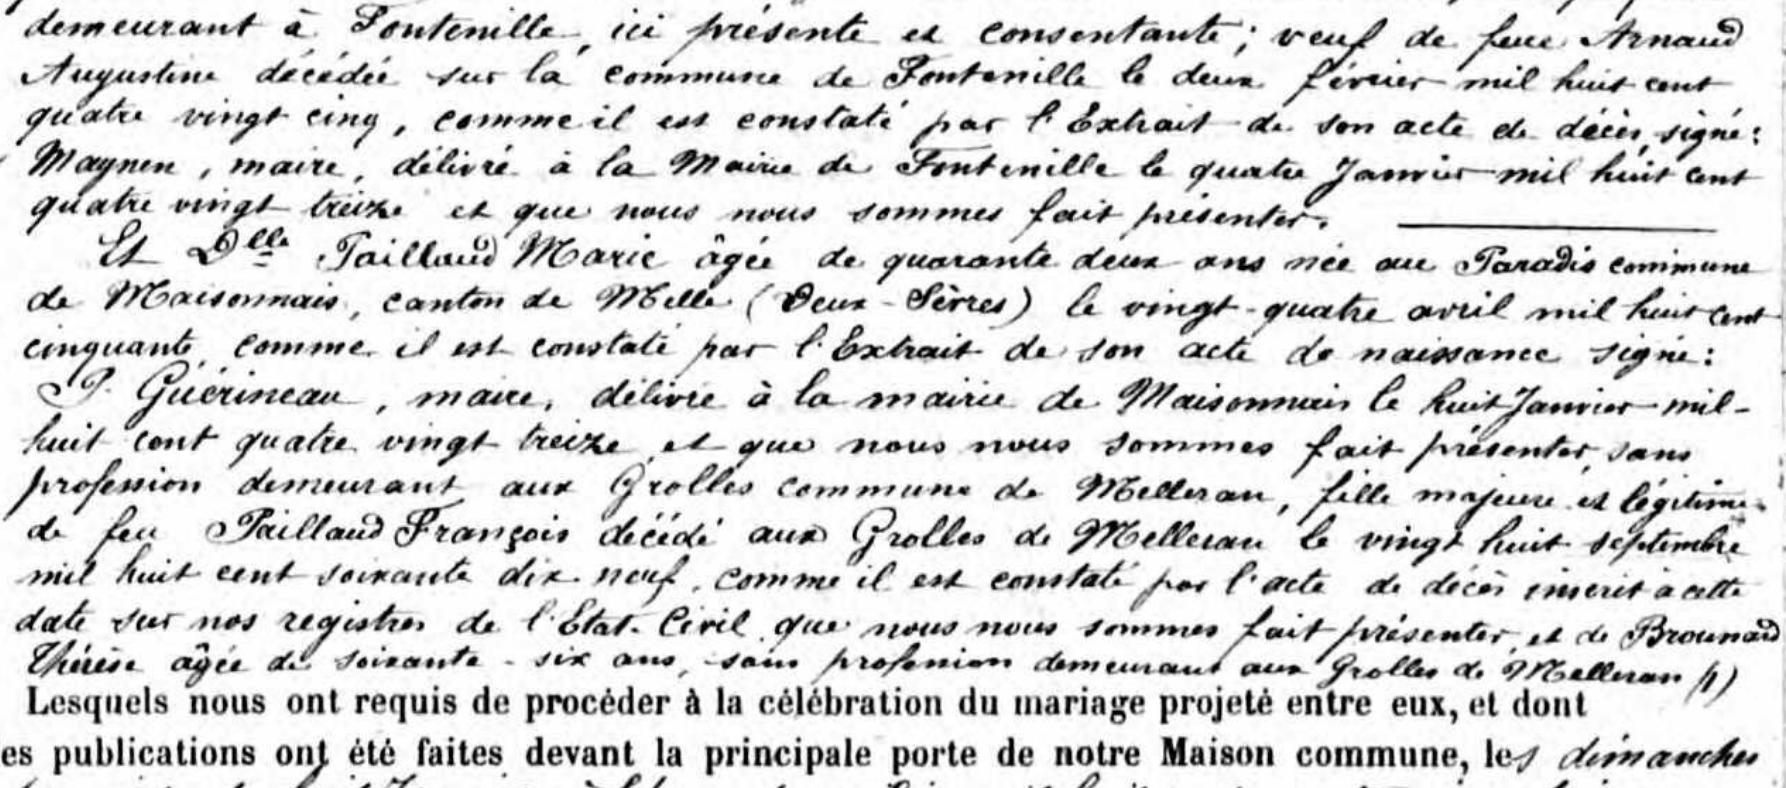 demeurant à Fontenille, ici présente et consentante; veuf de feue Arnaud
Augustine décédée sur la commune de Fontenille le deux février mil huit cent
quatre vingt cinq, comme il est constaté par l'Extrait de son acte de décès, signé:
Maynen, maire, délivré à la Mairie de Fontenille le quatre Janvier mil huit cent
quatre vingt treize et que nous nous sommes fait présenter.
Et Dlle Paillaud Marie âgée de quarante deux ans née au Paradis commune
de Maisonnais, canton de Melle (Deux-Sèvres) le vingt-quatre avril mil huit cent
cinquante, comme il est constaté par l'Extrait de son acte de naissance signé:
P. Guérineau, maire, délivré à la mairie de Maisonnais le huit Janvier mil-
huit cent quatre vingt treize et que nous nous sommes fait présenter, sans
profession demeurant aux Grolles commune de Melleran, fille majeure et légitime
de feu Paillaud François décédé aux Grolles de Melleran le vingt huit septembre
mil huit cent soixante dix neuf, comme il est constaté par l'acte de décès inscrit à cette
date sur nos registres de l'Etat-Civil que nous nous sommes fait présenter, et de Brounaud
Thérèse âgée de soixante-six ans, sans profession demeurant aux Grolles de Melleran (1)
Lesquels nous ont requis de procéder à la célébration du mariage projeté entre eux, et dont
es publications ont été faites devant la principale porte de notre Maison commune, les dimanches